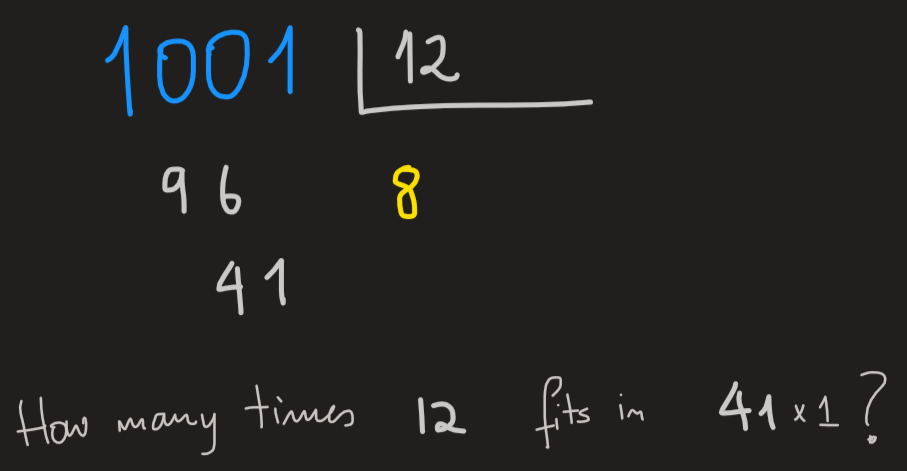 1001 12
96 8
41
How many times 12 fits in 41 x 1?